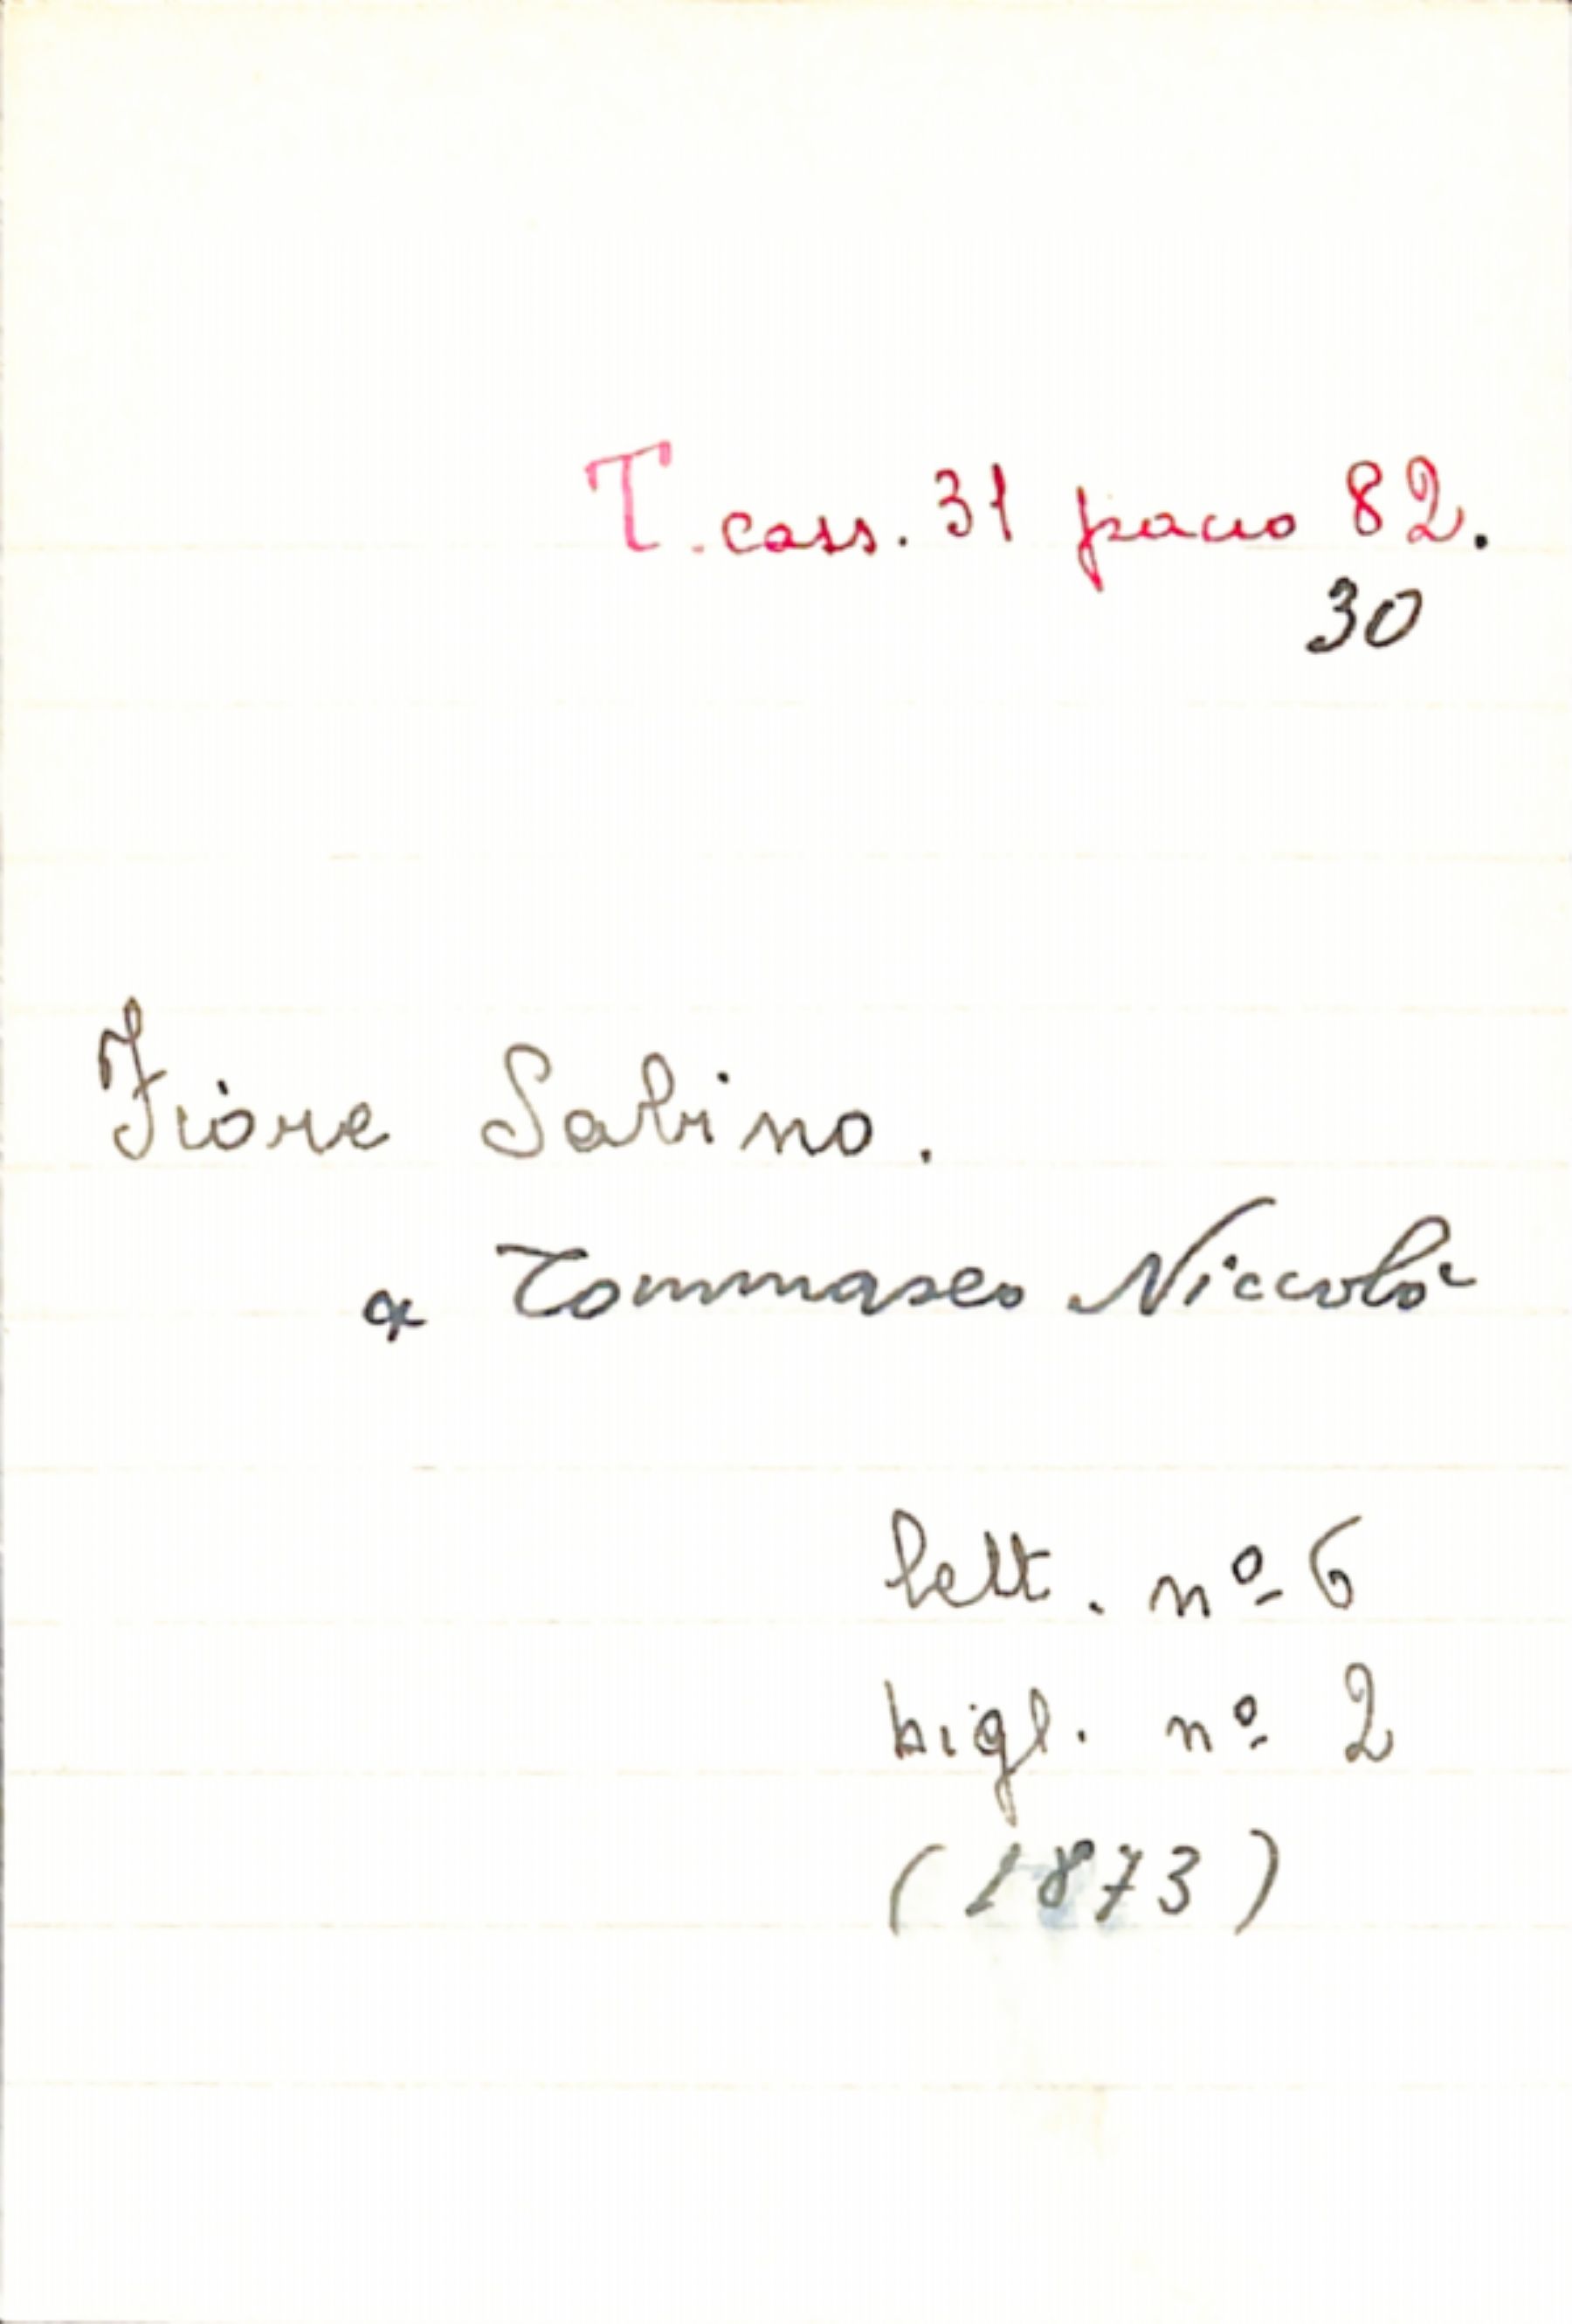 T. cass. 31 pacco 82.
30
Fiore Sabino.
a Tommaseo Niccolò
lett. nº 6
bigl. nº 2
(1873)